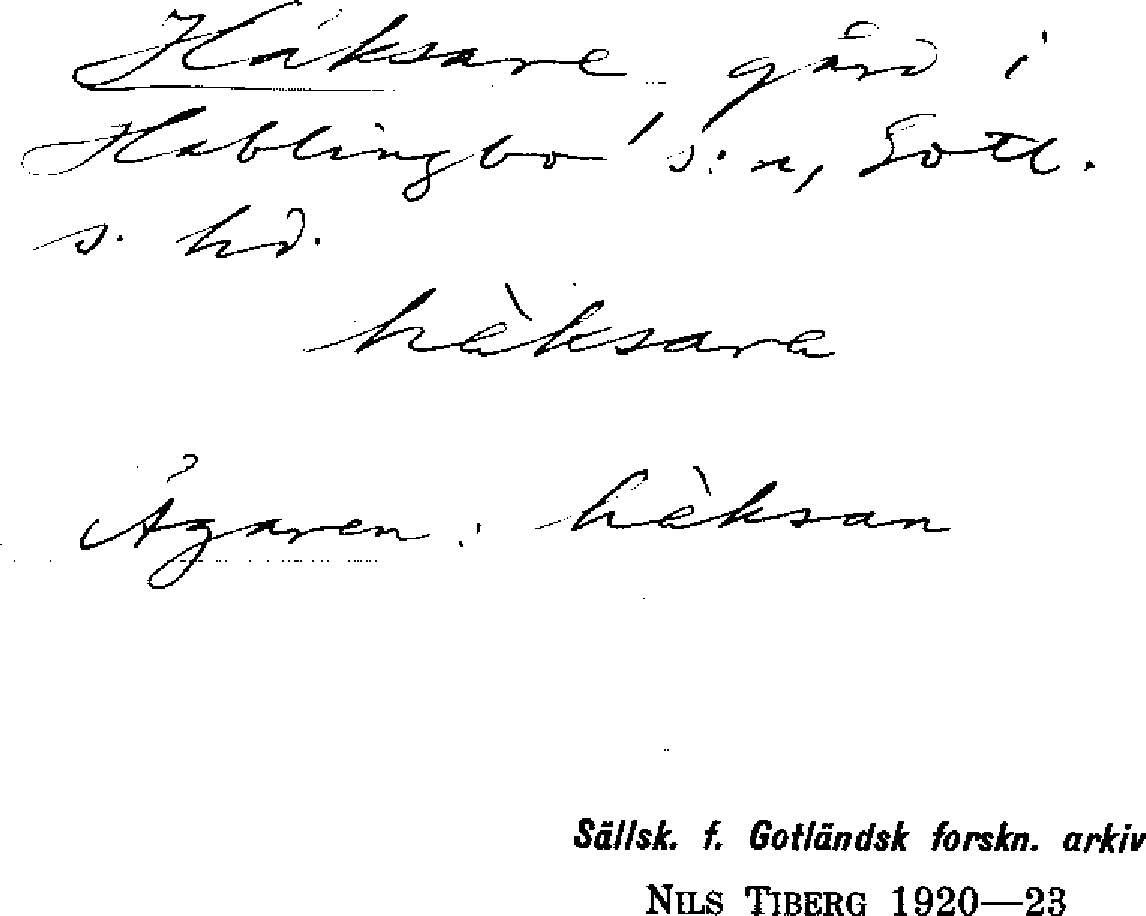 Häksare gård i
Hablingbo s:n, Gotl.
s. hd.
hàksara
Ägaren: hàksan
Sällsk. f. Gotländsk forskn. arkiv
NILS TIBERG 1920—23